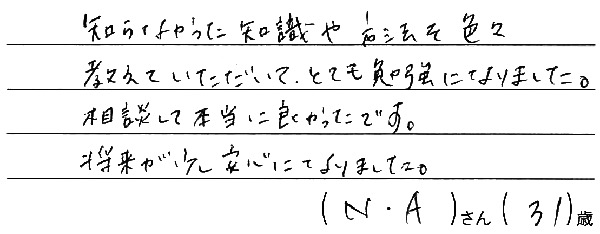 知らなかった知識や方法を色々
教えていただいて、とても勉強になりました。
相談して本当に良かったです。
将来が少し安心になりました。
(N・A)さん(31)歳